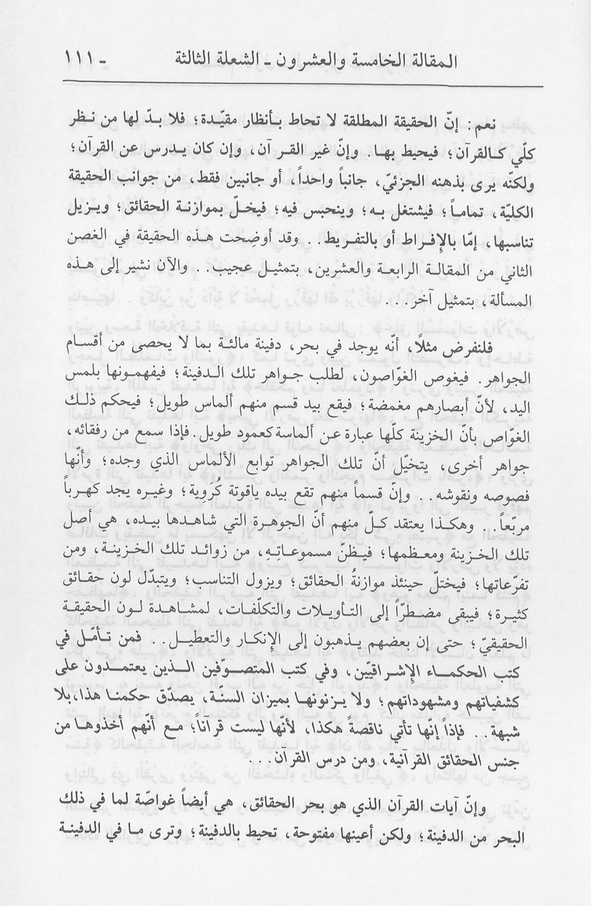 المقالة الخامسة والعشرون ـ الشعلة الثالثة ـ ١١١
نعم: إنّ الحقيقة المطلقة لا تحاط بأنظار مقيّدة؛ فلا بدّ لها من نظر
كلّي كالقرآن؛ فيحيط بها. وإنّ غير القرآن، وإن كان يدرس عن القرآن؛
ولكنّه يرى بذهنه الجزئيّ، جانباً واحداً، أو جانبين فقط، من جوانب الحقيقة
الكليّة، تماماً؛ فيشتغل به؛ وينحبس فيه؛ فيخلّ بموازنة الحقائق؛ ويزيل
تناسبها، إمّا بالإفراط أو بالتفريط.. وقد أوضحت هذه الحقيقة في الغصن
الثاني من المقالة الرابعة والعشرين، بتمثيل عجيب.. والآن نشير إلى هذه
المسألة، بتمثيل آخر...
فلنفرض مثلاً، أنّه يوجد في بحر، دفينة مالئة بما لا يحصى من أقسام
الجواهر. فيغوص الغوّاصون، لطلب جواهر تلك الدفينة؛ فيفهمونها بلمس
اليد، لأنّ أبصارهم مغمضة؛ فيقع بيد قسم منهم ألماس طويل؛ فيحكم ذلك
الغوّاص بأنّ الخزينة كلّها عبارة عن ألماسة كعمود طويل. فإذا سمع من رفقائه،
جواهر أخرى، يتخيّل أنّ تلك الجواهر توابع الألماس الذي وجده؛ وأنّها
فصوصه ونقوشه.. وإنّ قسماً منهم تقع بيده ياقوتة كُرَوية؛ وغيره يجد كهرباً
مربّعاً.. وهكذا يعتقد كلّ منهم أنّ الجوهرة التي شاهدها بيده، هي أصل
تلك الخزينة ومعظمها؛ فيظنّ مسموعاتِهِ، من زوائد تلك الخزينة، ومن
تفرّعاتها؛ فيختلّ حينئذ موازنةُ الحقائق؛ ويزول التناسب؛ ويتبدّل لون حقائق
كثيرة؛ فيبقى مضطرّاً إلى التأويلات والتكلّفات، لمشاهدة لون الحقيقة
الحقيقيّ؛ حتى إن بعضهم يذهبون إلى الإنكار والتعطيل.. فمن تأمّل في
كتب الحكماء الإشراقيّين، وفي كتب المتصوّفين الذين يعتمدون على
كشفياتهم ومشهوداتهم؛ ولا يزنونها بميزان السنّة، يصدّق حكمنا هذا، بلا
شبهة.. فإذاً إنّها تأتي ناقصةً هكذا، لأنّها ليست قرآناً؛ مع أنّهم أخذوها من
جنس الحقائق القرآنية، ومن درس القرآن...
وإنّ آيات القرآن الذي هو بحر الحقائق، هي أيضاً غواصّة لما في ذلك
البحر من الدفينة؛ ولكن أعينها مفتوحة، تحيط بالدفينة؛ وترى ما في الدفينة